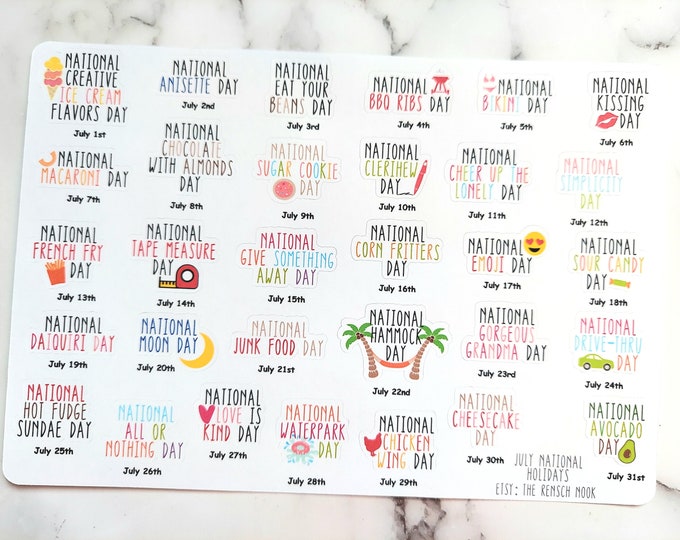 NATIONAL
CREATIVE
ICE CREAM
FLAVORS DAY
July 1st
NATIONAL
ANISETTE DAY
July 2nd
NATIONAL
EAT YOUR
BEANS DAY
July 3rd
NATIONAL
BBQ RIBS DAY
July 4th
NATIONAL
BIKINI DAY
July 5th
NATIONAL
KISSING
DAY
July 6th
NATIONAL
MACARONI DAY
July 7th
NATIONAL
CHOCOLATE
WITH ALMONDS
DAY
July 8th
NATIONAL
SUGAR COOKIE
DAY
July 9th
NATIONAL
CLERIHEW
DAY
July 10th
NATIONAL
CHEER UP THE
LONELY DAY
July 11th
NATIONAL
SIMPLICITY
DAY
July 12th
NATIONAL
FRENCH FRY
DAY
July 13th
NATIONAL
TAPE MEASURE
DAY
July 14th
NATIONAL
GIVE SOMETHING
AWAY DAY
July 15th
NATIONAL
CORN FRITTERS
DAY
July 16th
NATIONAL
EMOJI DAY
July 17th
NATIONAL
SOUR CANDY
DAY
July 18th
NATIONAL
DAIQUIRI DAY
July 19th
NATIONAL
MOON DAY
July 20th
NATIONAL
JUNK FOOD DAY
July 21st
NATIONAL
HAMMOCK
DAY
July 22nd
NATIONAL
GORGEOUS
GRANDMA DAY
July 23rd
NATIONAL
DRIVE-THRU
DAY
July 24th
NATIONAL
HOT FUDGE
SUNDAE DAY
July 25th
NATIONAL
ALL OR
NOTHING DAY
July 26th
NATIONAL
LOVE IS
KIND DAY
July 27th
NATIONAL
WATERPARK
DAY
July 28th
NATIONAL
CHICKEN
WING DAY
July 29th
NATIONAL
CHEESECAKE
DAY
July 30th
NATIONAL
AVOCADO
DAY
July 31st
JULY NATIONAL
HOLIDAYS
ETSY: THE RENSCH NOOK